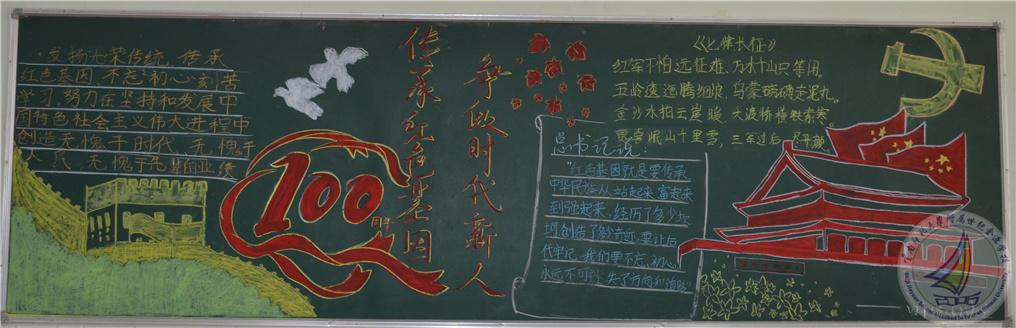 发扬光荣传统，传承
红色基因，不忘初心刻苦
学习，努力在坚持和发展中
国特色社会主义伟大进程中
创造无愧于时代，无愧于
人民，无愧于先辈的业绩
100
周年
传承红色基因
争做时代新人
总书记说
“红色基因就是要传承
中华民族从站起来富起来
到强起来，经历了多少坎
坷创造了多少奇迹，要让后
代牢记，我们要不忘初心，
永远不可
失了方向和道路”
《七律长征》
红军不怕远征难，万水千山只等闲。
五岭逶迤腾细浪，乌蒙磅礴走泥丸。
金沙水拍云崖暖，大渡桥横铁索寒。
更喜岷山千里雪，三军过后尽开颜
附属世纪
2006